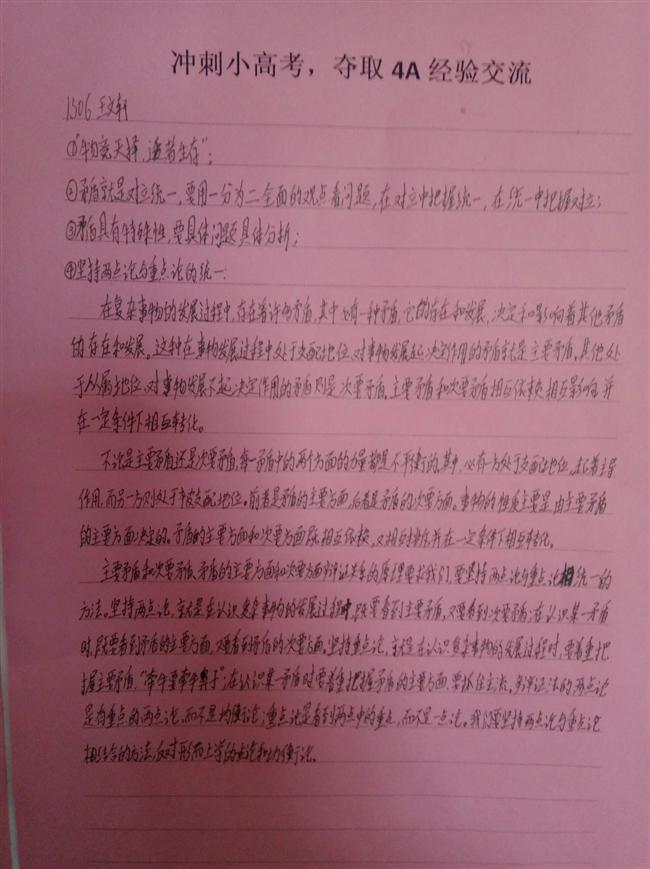 冲刺小高考，夺取 4A 经验交流
1306 王文轩
①"物竞天择，适者生存"；
②矛盾就是对立统一，要用一分为二全面的观点看问题，在对立中把握统一，在统一中把握对立；
③矛盾具有特殊性，要具体问题具体分析；
④坚持两点论与重点论的统一：
在复杂事物的发展过程中，存在着许多矛盾，其中必有一种矛盾，它的存在和发展，决定和影响着其他矛盾
的存在和发展。这种在事物发展过程中处于支配地位，对事物发展起决定作用的矛盾就是主要矛盾。其他处
于从属地位，对事物发展不起决定作用的矛盾则是次要矛盾。主要矛盾和次要矛盾相互依赖，相互影响，并
在一定条件下相互转化。
不论是主要矛盾还是次要矛盾，每一矛盾中的两个方面的力量都是不平衡的。其中，必有一方处于支配地位，起着主导
作用，而另一方则处于被支配地位。前者是矛盾的主要方面，后者是矛盾的次要方面。事物的性质主要是由主要矛盾
的主要方面决定的。矛盾的主要方面和次要方面既相互依赖，又相互排斥，并在一定条件下相互转化。
主要矛盾和次要矛盾、矛盾的主要方面和次要方面辩证关系的原理要求我们，要坚持两点论与重点论相统一的
方法。坚持两点论，就是在认识复杂事物的发展过程中，既要看到主要矛盾，又要看到次要矛盾；在认识某一矛盾
时，既要看到矛盾的主要方面，又要看到矛盾的次要方面。坚持重点论，就是在认识复杂事物的发展过程时，要着重把
握主要矛盾，"牵牛要牵牛鼻子"；在认识某一矛盾时要着重把握矛盾的主要方面，要抓住主流。辩证法的两点论
是有重点的两点论，而不是均衡论；重点论是看到两点中的重点，而不是一点论。我们要坚持两点论与重点论
相结合的方法，反对形而上学的一点论和均衡论。